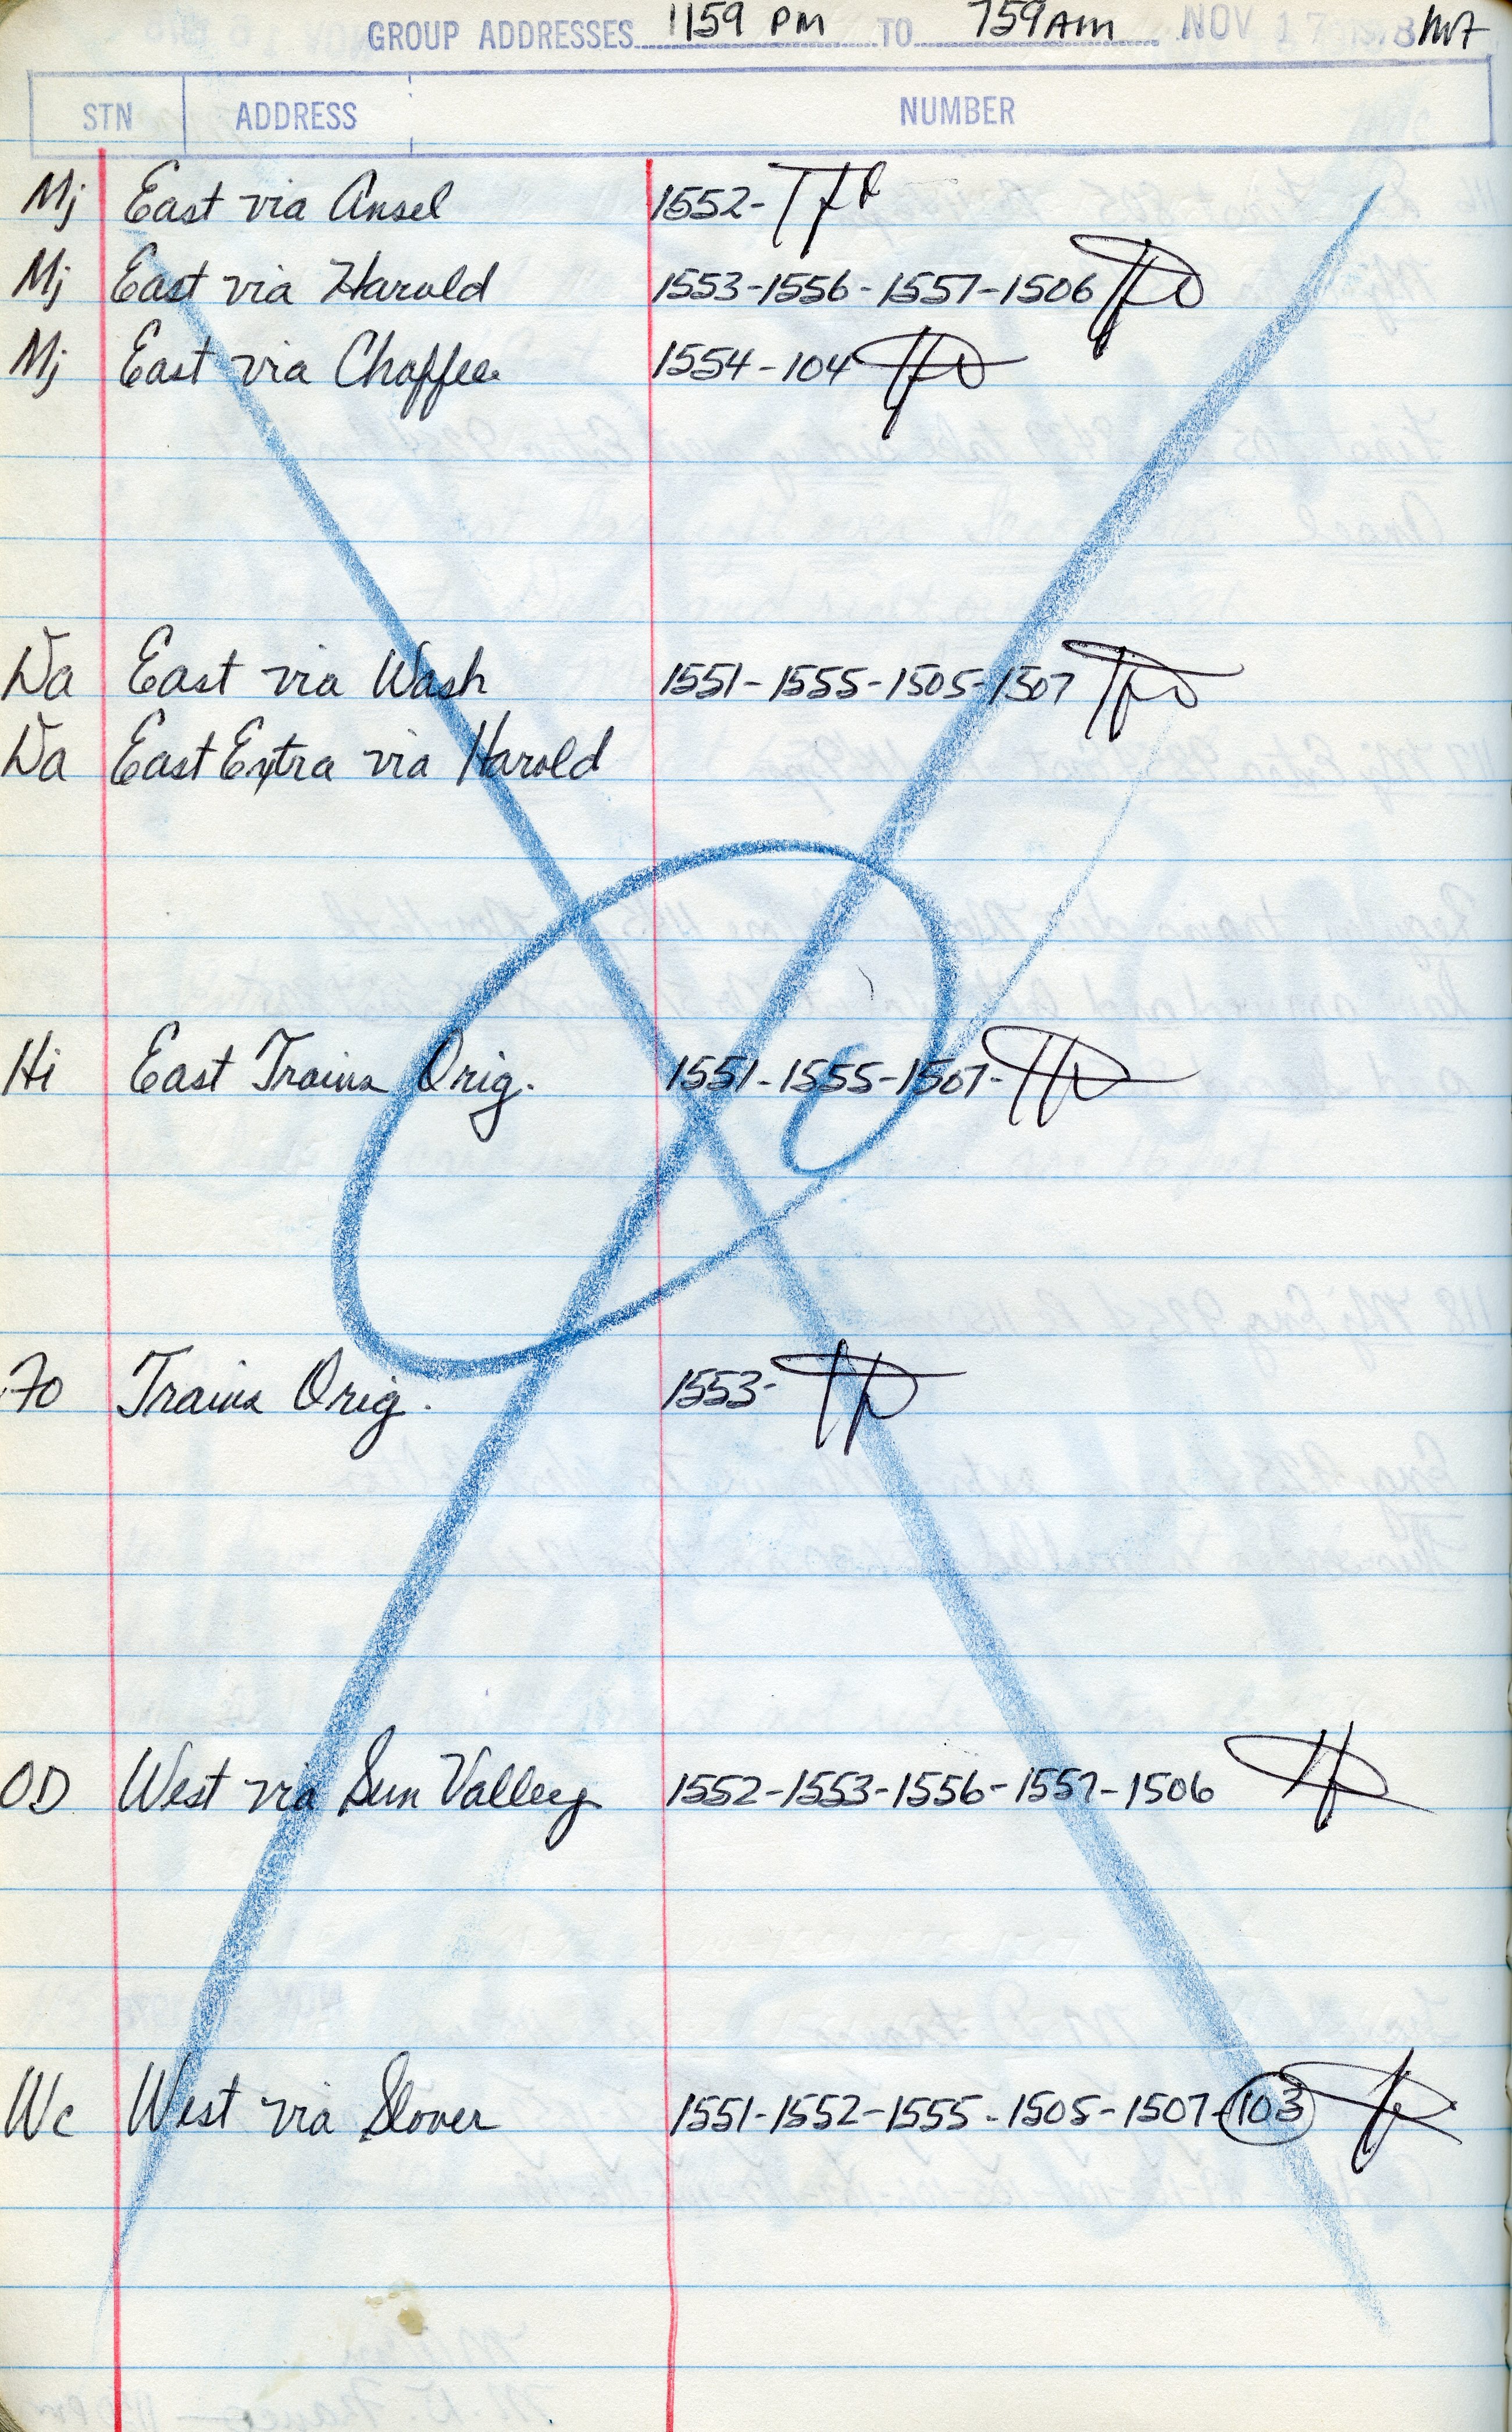 GROUP ADDRESSES 1159 PM TO 759 AM NOV 17 1978
STN ADDRESS NUMBER
Mj East via Ansel 1552-
Mj East via Harold 1553-1556-1557-1506
Mj East via Chaffee 1554-104
Da East via Wash 1551-1555-1505-1507
Da East Extra via Harold
Hi East Trains Orig. 1551-1555-1507-
Fo Trains Orig. 1553-
OD West via Sun Valley 1552-1553-1556-1557-1506
Wc West via Slover 1551-1552-1555-1505-1507-103